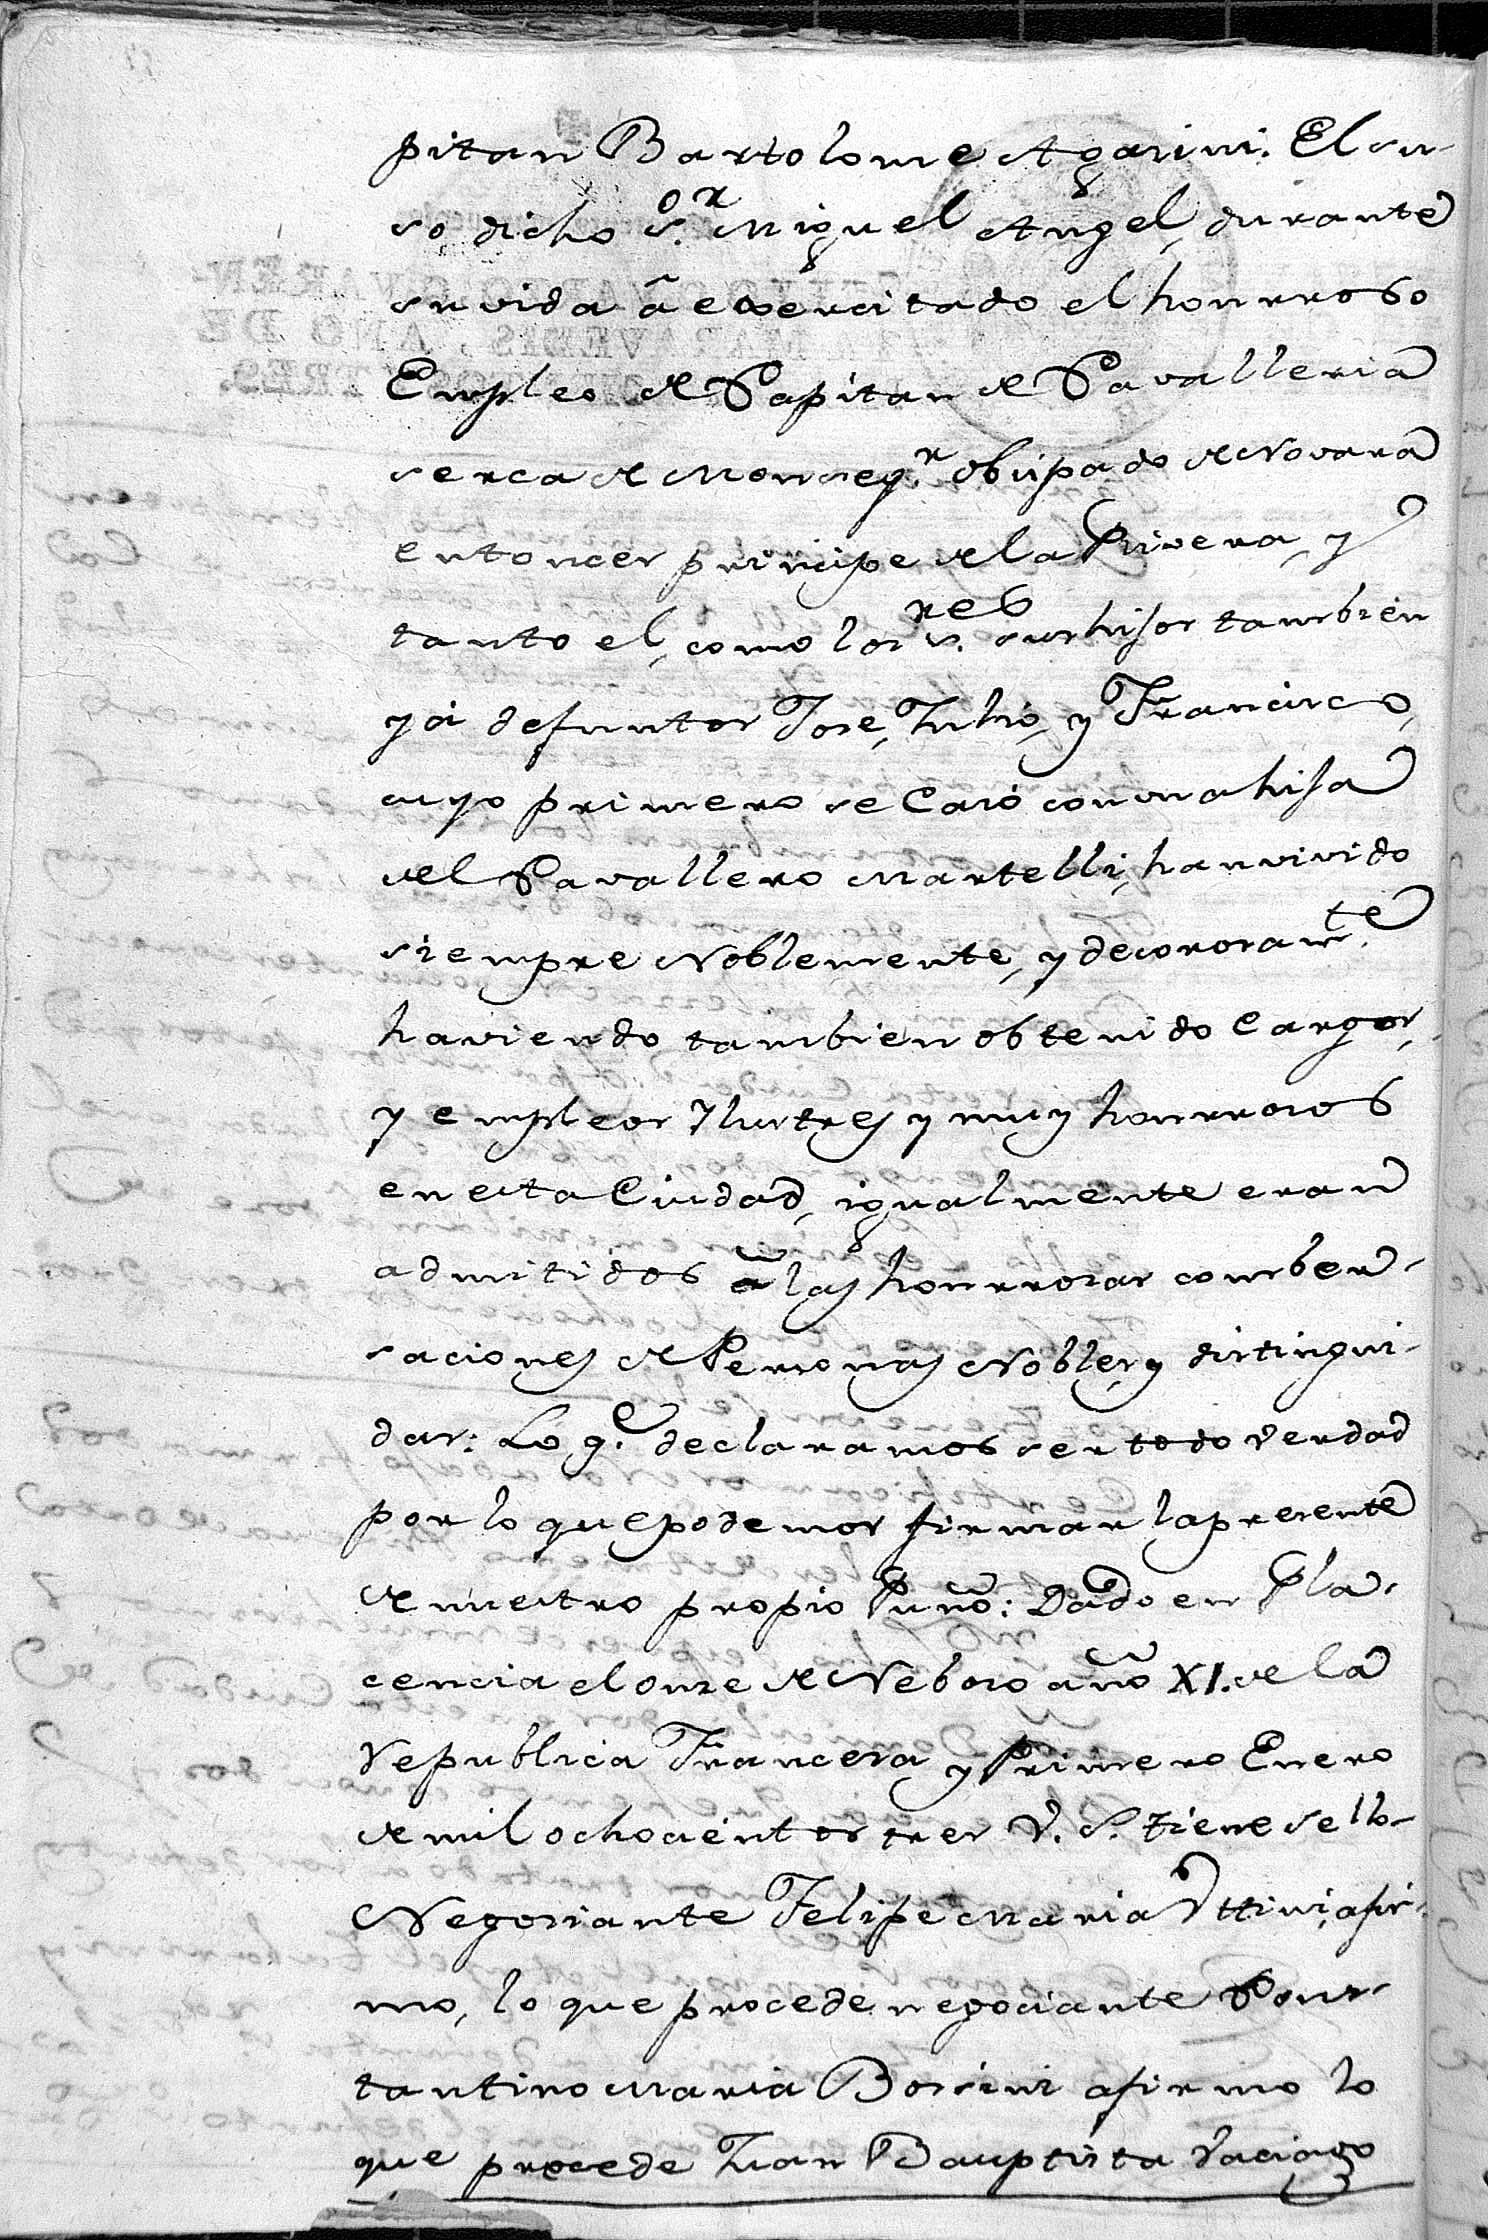 pitan Bartolome Agarini. El su-
so dicho S.or Miguel Angel, durante
su vida â exercitado el honrroso
Empleo de Capitan de Cavalleria
serca de Monseg.r obispado de Novara
entonces principe de la Rivera, y
tanto el, como los S.res sus hijos tambien
yá defuntos Jose, Julio, y Francisco,
cuyo primero se Casó con una hija
del Cavallero Martelli, han vivido
siempre Noblemente, y decorosam.te
haviendo tambien obtenido Cargos,
y empleos Ylustres y muy honrrosos
en esta Ciudad, igualmente eran
admitidos â las honrrosas comber-
saciones de Personas Nobles y distingui-
das: Lo q.e declaramos ser todo Verdad
por lo que podemos firmar la presente
de nuestro propio Puño: Dado en Pla-
cencia el onze de Neboso año XI. de la
Republica Francesa, y Primero Enero
de mil ochocientos tres V. S. tiene sello-
Negosiante Felipe Maria Vttini, afir-
mo, lo que procede negociante Cons-
tantino Maria Bossini afirmo lo
que procede Juan Bauptista